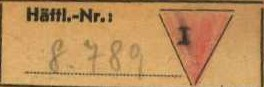 Häftl.-Nr.:
I
8.789